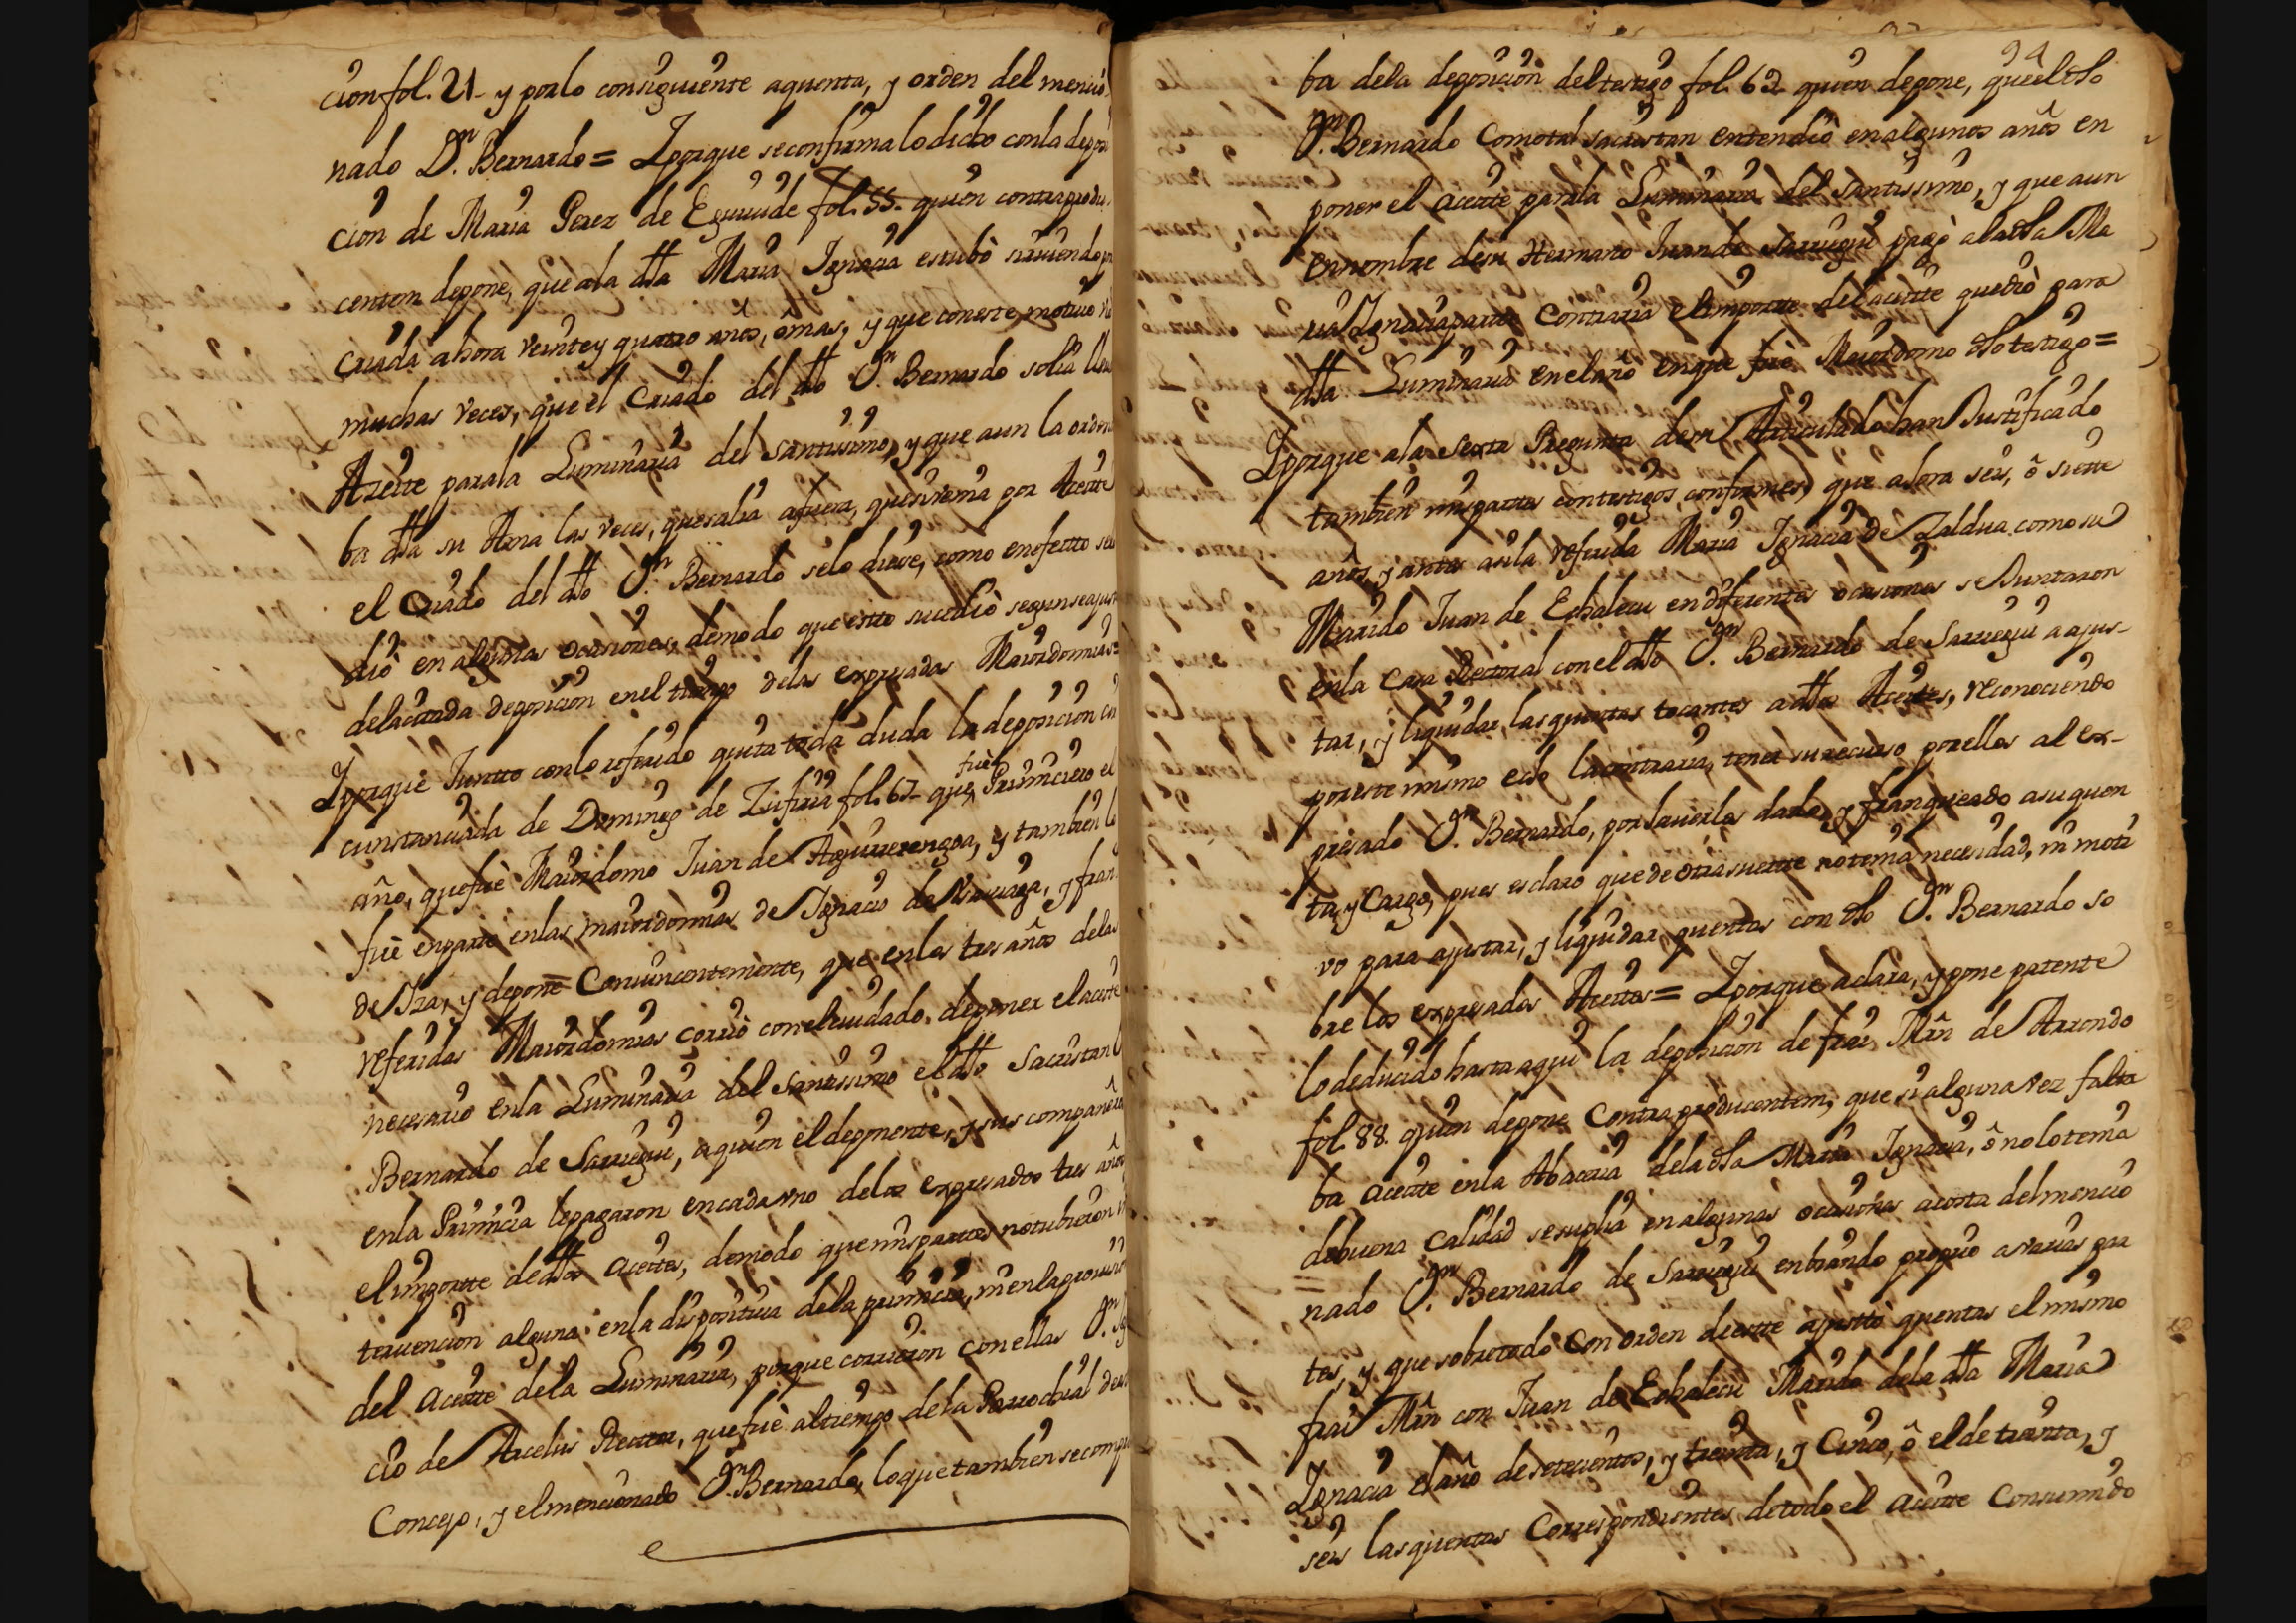 cion fol. 21 y porlo consiguiente aquenta, y orden del mencio
nado Dn. Bernardo = Yporque seconfirma lo dicho conla deposi
cion de Maria Perez de Eguiuide fol. 55. quien contraprodu
centem depone, que ala dha Maria Ignacia estubò siruiendo
criada ahora veinte y quatro años, ômas, y que coneste motiuo
muchas veces, que el Criado del dho Dn Bernardo solia lleua
Azeite parala Luminaria del Santissimo, y que aun la orden
ba dha su Ama las veces, quesalia afuera, quesivenia por Aceite
el criado del dho Dn. Bernardo selo diese, como enefecto
diò en algunas ocasiones, demodo que esto sucediò segun seajus
delacitada deposicion enel tiempo delas expresadas Maiordomias =
Yporque Juntto conlo referido quita toda duda la deposicion cir
cunstanciada de Domingo de Zufiria fol. 67. que fuè Primiciero el
año, quefuè Maiordomo Juan de Aguirrerengoa, y tambien lo
fuè enparte enlas maiordomias de Ignacio de, y fran
de Iza, y depone Conuincentemente, que enlos tres años delas
referidas Maiordomias corriò conelcuidado, deponer elaceite
necesario enla Luminaria del Santissimo eldho Sacristan
Bernardo de Sarregui, aquien eldeponente, y sus compañero
enla Primicia lepagaron encadavno delos expresados tres años
elimporte dedhos aceites, demodo quemispartes notubieron in
teruencion alguna enla dispositiua dela primicia, nienlaprouisio
del aceite dela Luminaria, porque corrieron conellas Dn. Ig
cio de Arcelus Rector, quefuè altiempo dela Parrochial deu
Concejo, y elmencionado Dn. Bernardo, loquetambien secomprue
94
ba dela deposicion deltestigo fol. 62. quien depone, queeldho
Dn. Bernardo Comotal sacristan entendiò enalgunos años en
poner el aceite parala Luminaria del Santissimo, y que aun
ennombre desu Hermano Juande Sarregui pagò aladha Ma
ria Ignacia parte Contraria elimporte del aceite quediò para
dha Luminaria enelaño enque fuè Maiordomo dho testigo =
Yporque ala sexta Pregunta desu Articulado han Justificado
tambien mispartes contestigos, conformes, que ahora seis, ô siette
años, y antes asila referida Maria Ignacia de Zaldua como su
Marido Juan de Echalecu endiferentes ocasiones seJuntaron
enla casa Rectoral conel dho Dn. Bernardo de Sarregui aajus-
tar, y liquidar, lasquentas tocantes adhos Aceites, reconociendo
poreste mismo echo lacontraria, tener surecurso porellos al ex-
presado Dn. Bernardo, porhauerlos dado, y franqueado asuquen
ta, y Cargo, pues esclaro quedeotrasuerte notenia necesidad, ni moti
vo para ajustar, y liquidar quentas con dho Dn. Bernardo so
bre los expresados Aceites = Yporque aclara, ypone patente
lodeducido hasta aqui la deposicion de frai Min de Arrondo
fol. 88. quien depone Contraproducentem, que si algunavez falta
ba aceite enla Abaceria dela dha Maria Ignacia, ô nolotenia
debuena calidad sesuplia enalgunas ocasiones acosta delmencio
nado Dn. Bernardo de Sarregui enbiando propio avarias par
tes, y que sobretodo Con orden deeste ajustò quentas elmismo
frai Min con Juan de Echalecu Marido dela dha Maria
Ignacia elaño desetecientos, y treinta, y Cinco, ô el de treinta, y
seis lasquentas Correspondientes detodoel aceite Consumido